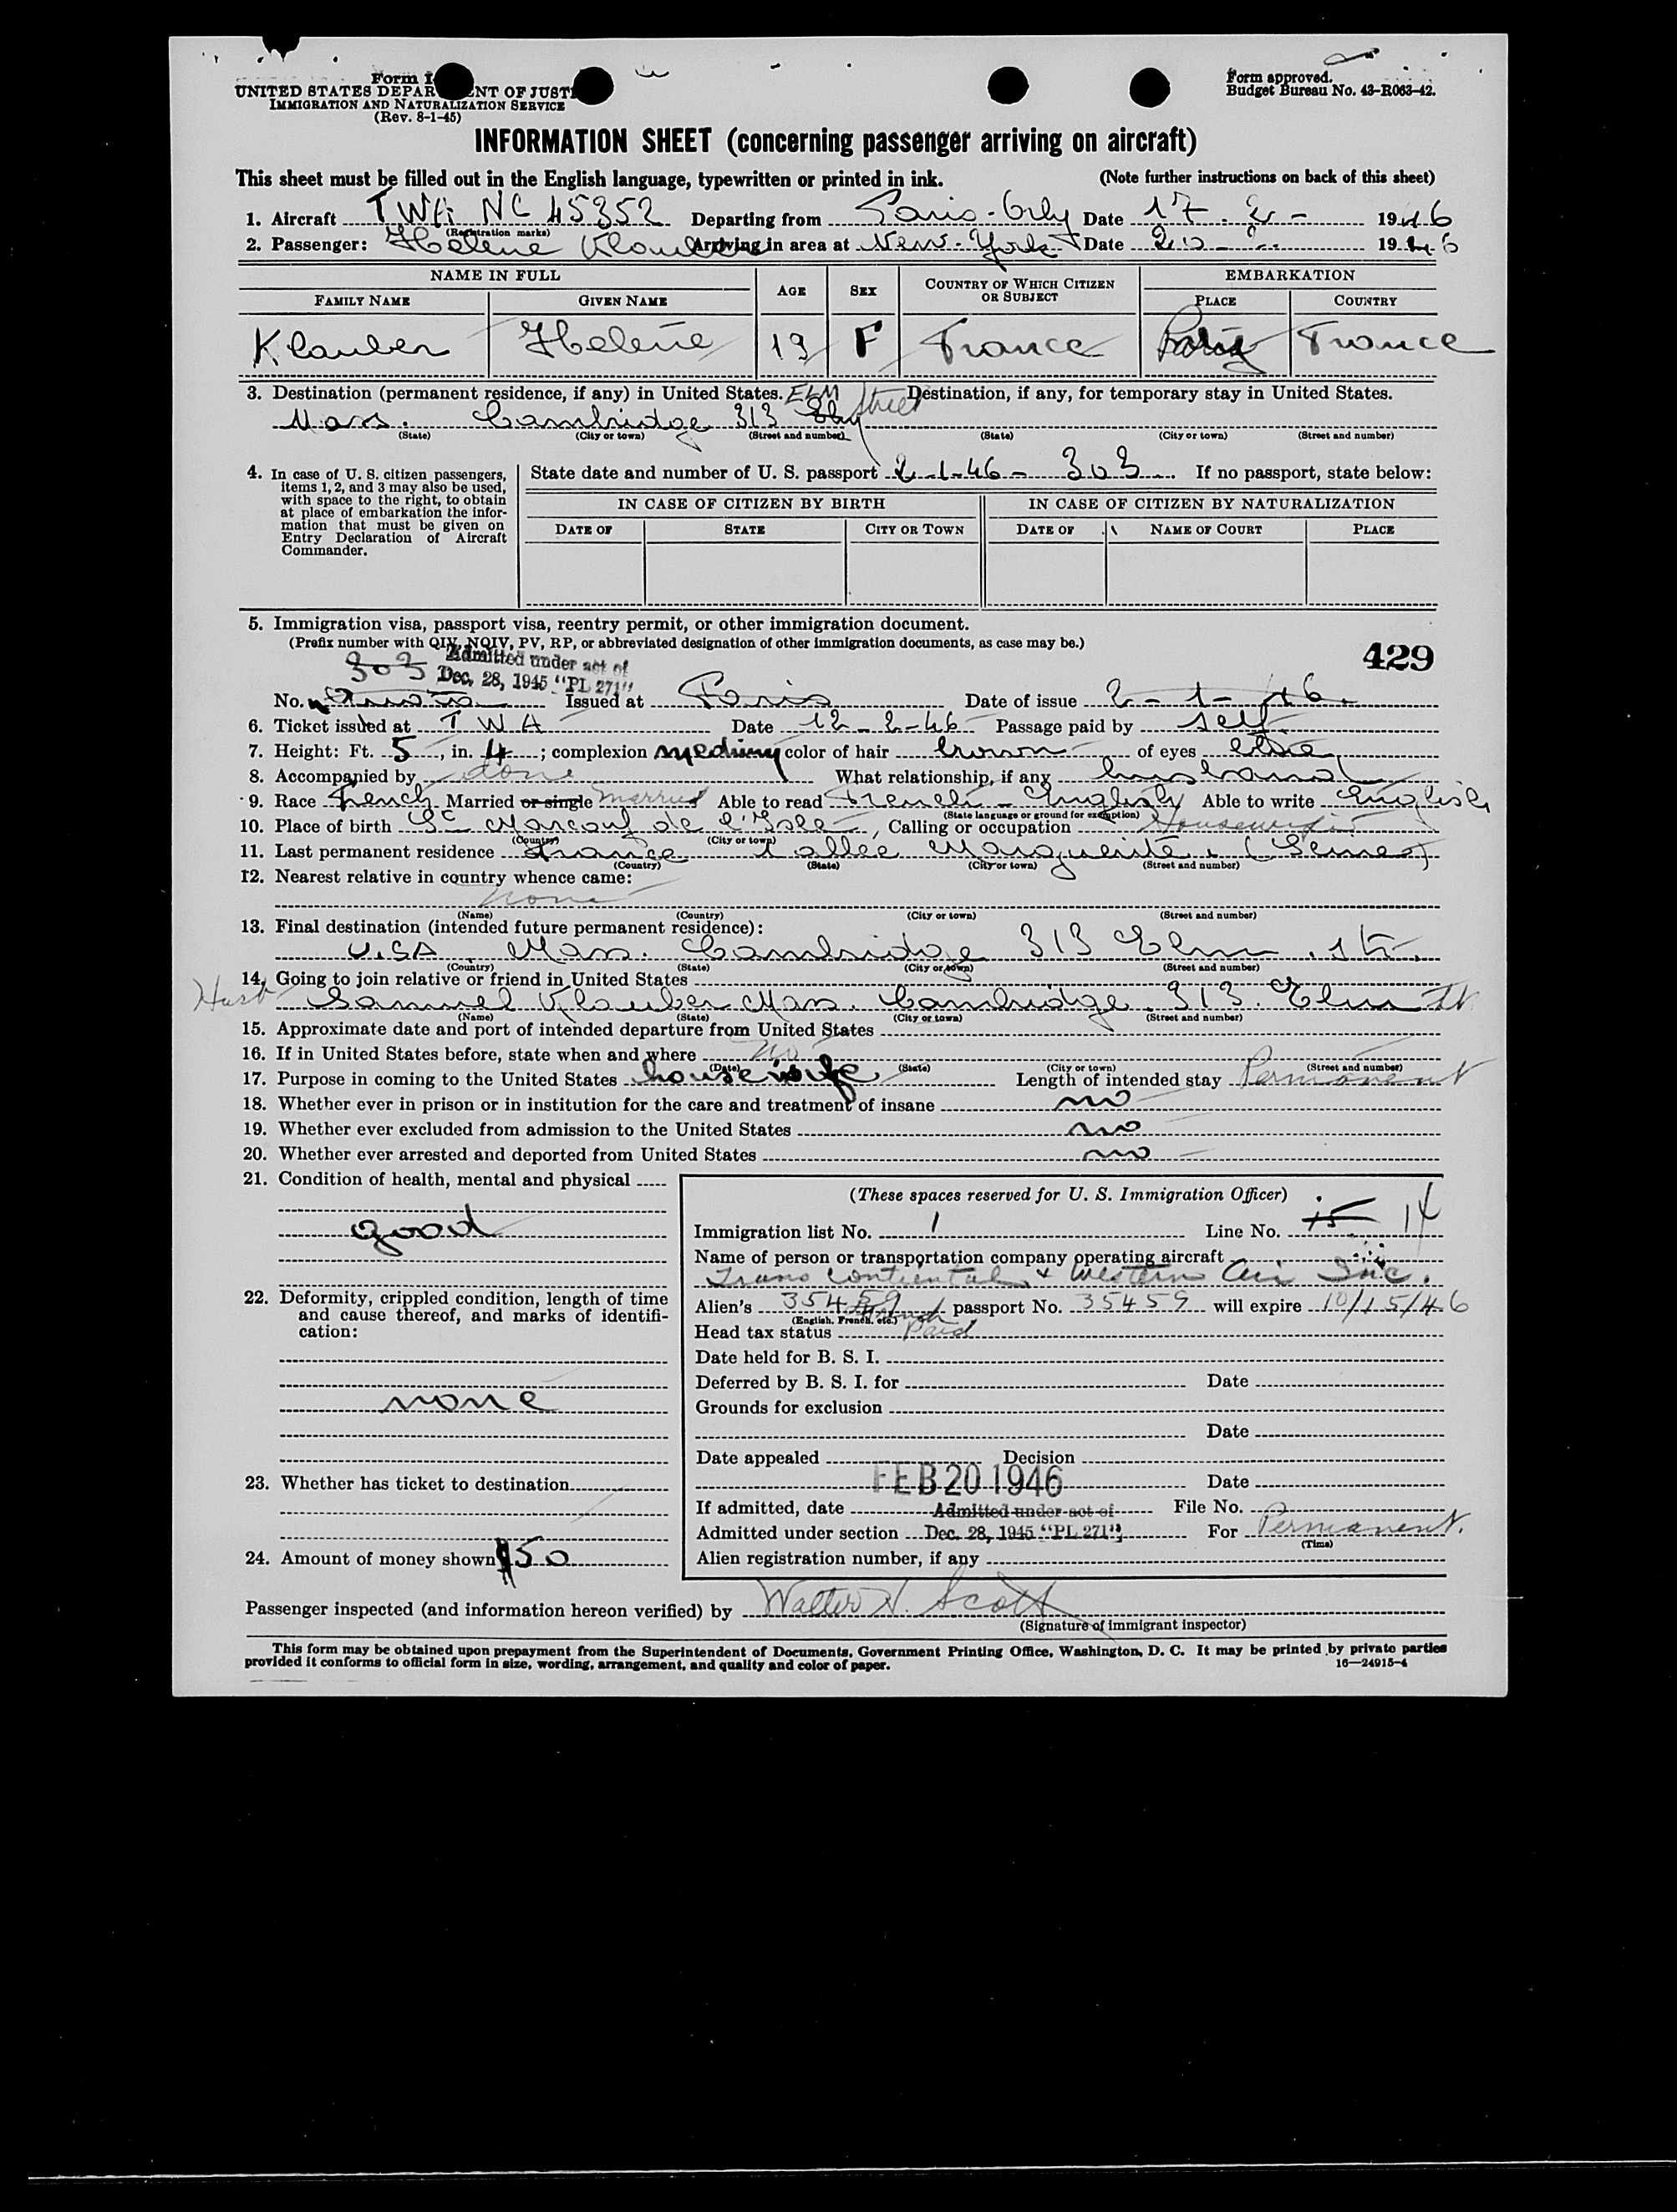 Form I-
UNITED STATES DEPAR NT OF JUSTI
IMMIGRATION AND NATURALIZATION SERVICE
(Rev. 8-1-45)
Form approved.
Budget Bureau No. 43-R063-42.
INFORMATION SHEET (concerning passenger arriving on aircraft)
This sheet must be filled out in the English language, typewritten or printed in ink. (Note further instructions on back of this sheet)
1. Aircraft TWA NC 45352 Departing from Paris-Orly Date 17-2- 1946
(Registration marks)
2. Passenger: Helene Klauber Arriving in area at New-York Date 20-2- 1946
NAME IN FULL AGE SEX COUNTRY OF WHICH CITIZEN OR SUBJECT EMBARKATION
FAMILY NAME GIVEN NAME PLACE COUNTRY
Klauber Helene 19 F France Paris France
3. Destination (permanent residence, if any) in United States. ELM Street Destination, if any, for temporary stay in United States.
Mass. Cambridge 313
(State) (City or town) (Street and number) (State) (City or town) (Street and number)
4. In case of U. S. citizen passengers, items 1, 2, and 3 may also be used, with space to the right, to obtain at place of embarkation the information that must be given on Entry Declaration of Aircraft Commander.
State date and number of U. S. passport 2-1-46- 303 If no passport, state below:
IN CASE OF CITIZEN BY BIRTH IN CASE OF CITIZEN BY NATURALIZATION
DATE OF STATE CITY OR TOWN DATE OF NAME OF COURT PLACE
5. Immigration visa, passport visa, reentry permit, or other immigration document.
(Prefix number with QIV, NQIV, PV, RP, or abbreviated designation of other immigration documents, as case may be.)
429
303 Admitted under act of
Dec. 28, 1945 "PL 271"
No. Issued at Paris Date of issue 2-1-46
6. Ticket issued at TWA Date 12-2-46 Passage paid by self
7. Height: Ft. 5, in. 4; complexion medium color of hair brown of eyes blue
8. Accompanied by alone What relationship, if any husband
9. Race French Married or single married Able to read French - English Able to write English
(State language or ground for exemption)
10. Place of birth St Marcouf de l'Isle, Calling or occupation Housewife
(Country) (City or town)
11. Last permanent residence France Marguerite (Seine)
(Country) (State) (City or town) (Street and number)
12. Nearest relative in country whence came:
none
(Name) (Country) (City or town) (Street and number)
13. Final destination (intended future permanent residence):
U.SA Mass. Cambridge 313 Elm. st.
(Country) (State) (City or town) (Street and number)
14. Going to join relative or friend in United States
Husb Samuel Klauber Mass. Cambridge. 313. Elm St.
(Name) (State) (City or town) (Street and number)
15. Approximate date and port of intended departure from United States
16. If in United States before, state when and where no
(Date) (State) (City or town) (Street and number)
17. Purpose in coming to the United States housewife Length of intended stay Permanent
18. Whether ever in prison or in institution for the care and treatment of insane no
19. Whether ever excluded from admission to the United States no
20. Whether ever arrested and deported from United States no
21. Condition of health, mental and physical
good
22. Deformity, crippled condition, length of time and cause thereof, and marks of identification:
none
23. Whether has ticket to destination
24. Amount of money shown $50
(These spaces reserved for U. S. Immigration Officer)
Immigration list No. 1 Line No. 15 14
Name of person or transportation company operating aircraft
Trans Continental & Western Air Inc.
Alien's 35459 French passport No. 35459 will expire 10/15/46
(English, French, etc.)
Head tax status Paid
Date held for B. S. I.
Deferred by B. S. I. for Date
Grounds for exclusion
Date
Date appealed Decision
FEB 20 1946 Date
If admitted, date Admitted under act of File No.
Admitted under section Dec. 28, 1945 "PL 271" For Permanent.
(Time)
Alien registration number, if any
Passenger inspected (and information hereon verified) by Walter N. Scott
(Signature of immigrant inspector)
This form may be obtained upon prepayment from the Superintendent of Documents, Government Printing Office, Washington, D. C. It may be printed by private parties
provided it conforms to official form in size, wording, arrangement, and quality and color of paper. 16—24915-4